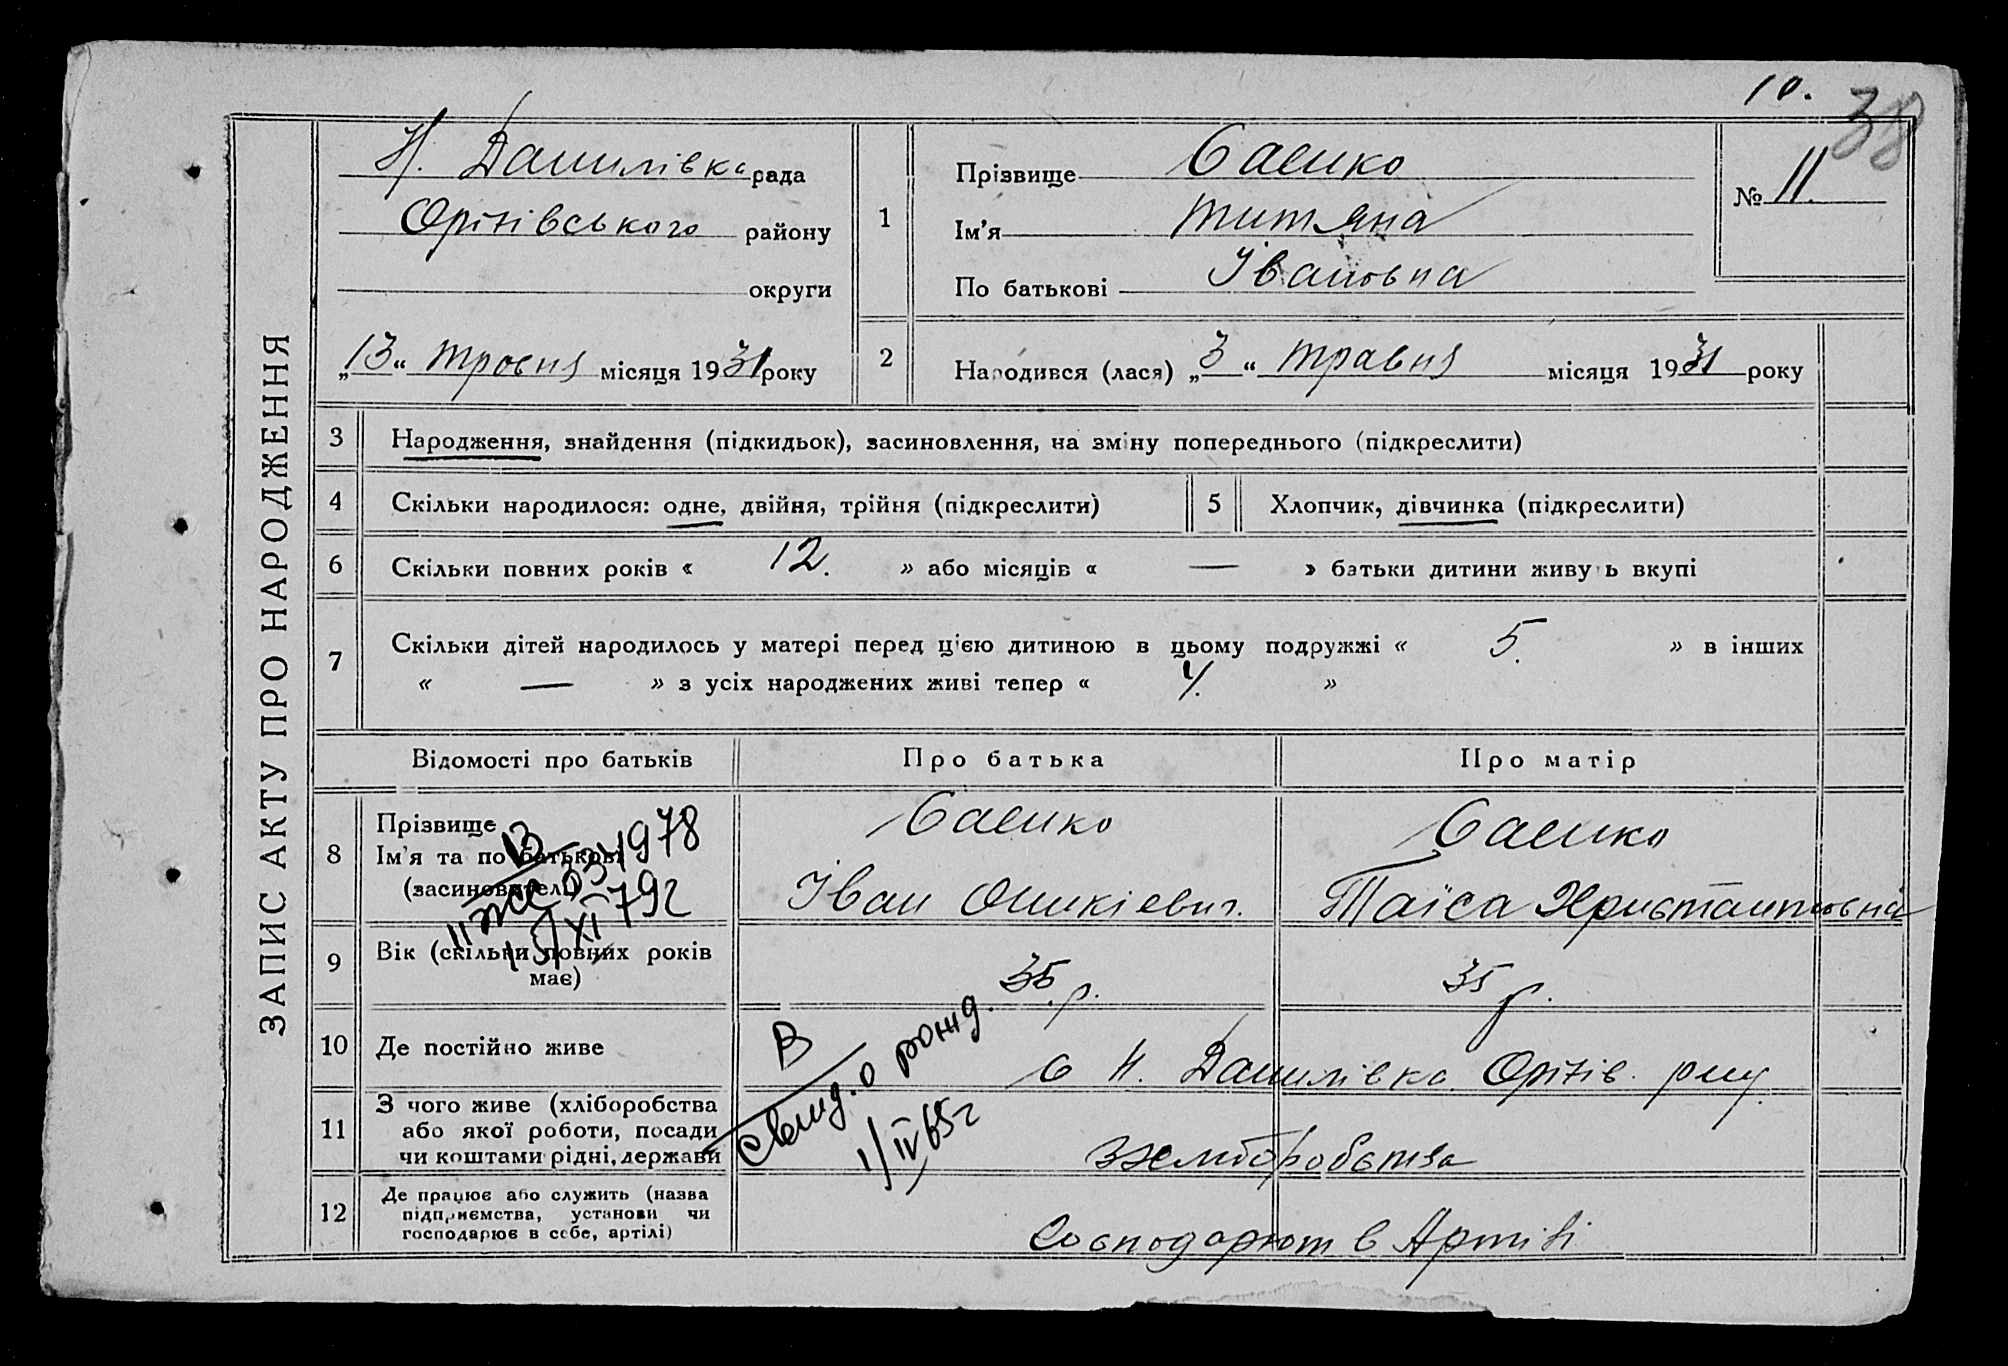 10.
38
ЗАПИС АКТУ ПРО НАРОДЖЕННЯ
Н. Данилівка рада
Оріхівського району
округи
„13“ травня місяця 1931 року
1
Прізвище Саенко
Ім'я Титяна
По батькові Івановна
№ 11.
2
Народився (лася) „3“ травня місяця 1931 року
3 Народження, знайдення (підкидьок), засиновлення, на зміну попереднього (підкреслити)
4 Скільки народилося: одне, двійня, трійня (підкреслити) 5 Хлопчик, дівчинка (підкреслити)
6 Скільки повних років « 12. » або місяців « — » батьки дитини живуть вкупі
7 Скільки дітей народилось у матері перед цією дитиною в цьому подружжі « 5. » в інших
« — » з усіх народжених живі тепер « 4. »
Відомості про батьків Про батька Про матір
8 Прізвище
Ім'я та по батькові
(засиновителів)
Саенко
Іван
Саенко
Таїса
В
II ЖС 334978
15/XI 79г
9 Вік (скільки повних років має)
35 р. 35 р.
10 Де постійно живе
с Н. Данилівка Оріхів. р-ну
В
свид. о рожд.
1/IV 65г
11 З чого живе (хліборобства
або якої роботи, посади
чи коштами рідні, держави
12 Де працює або служить (назва
підприємства, установи чи
господарює в себе, артілі)
в Артілі